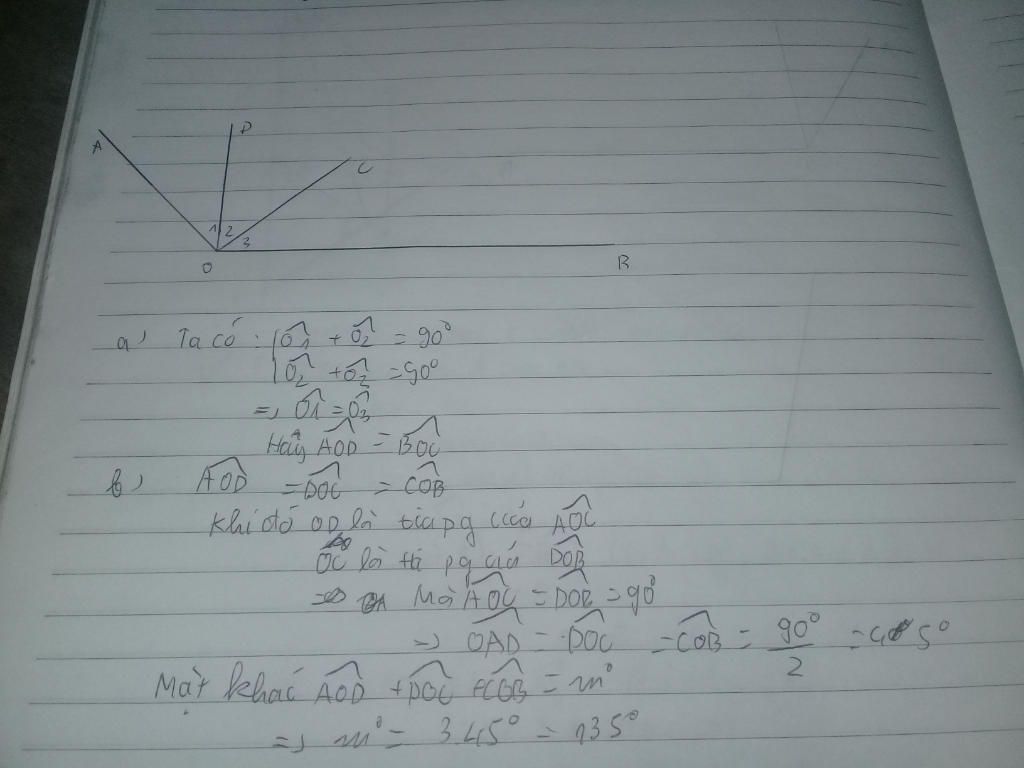 A
D
C
1 2
3
O
B
a, Ta có : { Ô1 + Ô2 = 90°
Ô2 + Ô3 = 90°
=> Ô1 = Ô3
Hay AOD = BOC
b, AOD = DOC = COB
Khi đó OD là tia pg của AOC
OC là ti pg của DOB
Mà AOC = DOB = 90°
=> OAD = DOC = COB = 90° / 2 = 45°
Mặt khác AOD + DOC + COB = m°
=> m° = 3.45° = 135°